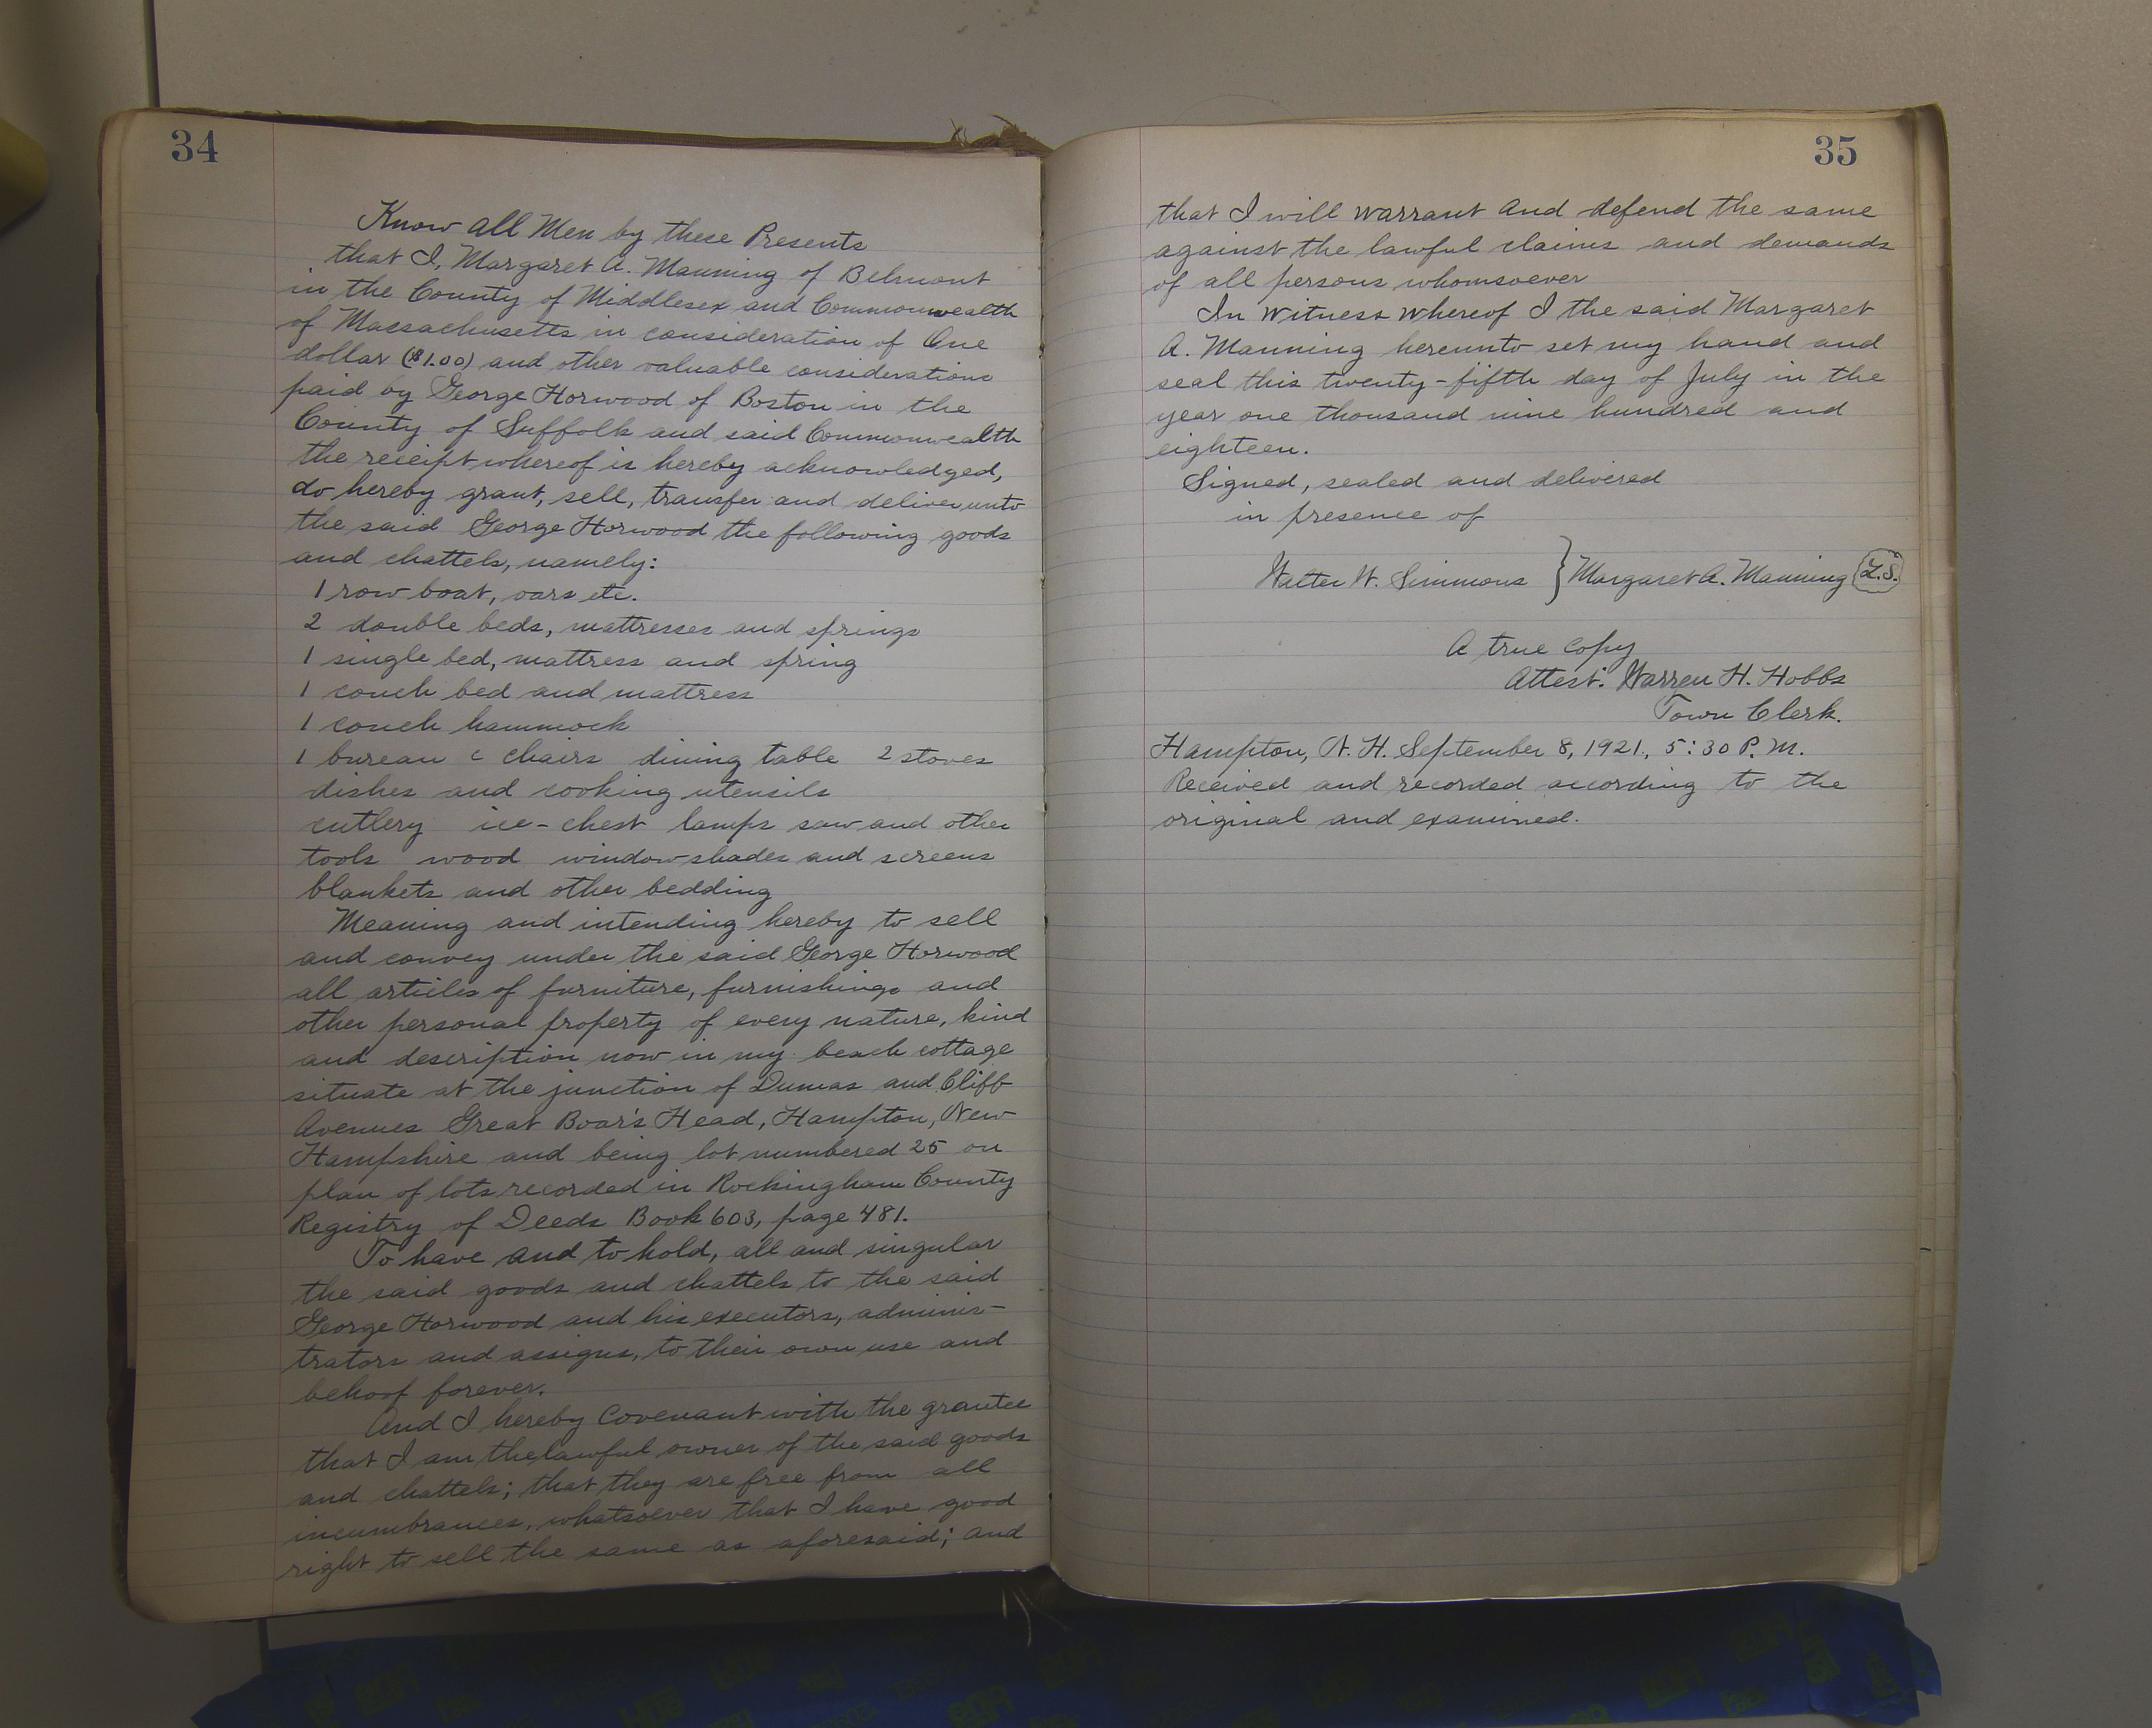 34
Know all Men by these Presents
that I, Margaret A. Manning of Belmont
in the County of Middlesex and Commonwealth
of Massachusetts in consideration of One
dollar ($1.00) and other valuable considerations
paid by George Horwood of Boston in the
County of Suffolk and said Commonwealth
the receipt whereof is hereby acknowledged,
do hereby grant, sell, transfer and deliver unto
the said George Horwood the following goods
and chattels, namely:
1 row boat, oars etc.
2 double beds, mattresses and springs
1 single bed, mattress and spring
1 couch bed and mattress
1 couch hammock
1 bureau chairs dining table 2 stoves
dishes and cooking utensils
cutlery ice-chest lamps saw and other
tools wood window shades and screens
blankets and other bedding
Meaning and intending hereby to sell
and convey under the said George Horwood
all articles of furniture, furnishings and
other personal property of every nature, kind
and description now in my beach cottage
situate at the junction of Dumas and Cliff
Avenues Great Boar's Head, Hampton, New
Hampshire and being lot numbered 25 on
plan of lots recorded in Rockingham County
Registry of Deeds Book 603, page 481.
To have and to hold, all and singular
the said goods and chattels to the said
George Horwood and his executors, adminis-
trators and assigns, to their own use and
behoof forever.
And I hereby Covenant with the grantee
that I am the lawful owner of the said goods
and chattels; that they are free from all
incumbrances, whatsoever that I have good
right to sell the same as aforesaid; and
35
that I will warrant and defend the same
against the lawful claims and demands
of all persons whomsoever
In Witness Whereof I the said Margaret
A. Manning hereunto set my hand and
seal this twenty-fifth day of July in the
year one thousand nine hundred and
eighteen.
Signed, sealed and delivered
in presence of
Walter W. Simmons } Margaret A. Manning (L.S.)
A true copy
Attest: Warren H. Hobbs
Town Clerk.
Hampton, N. H. September 8, 1921, 5:30 P. M.
Received and recorded according to the
original and examined.